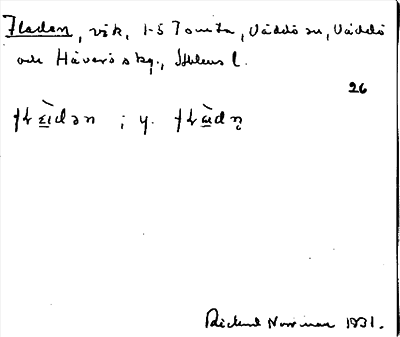 Fladan, vik, 1-5 Tomta, Väddö sn, Väddö
och Häverö skg., Sthlms l.
26
; y.
Rickard Norrman 1931.